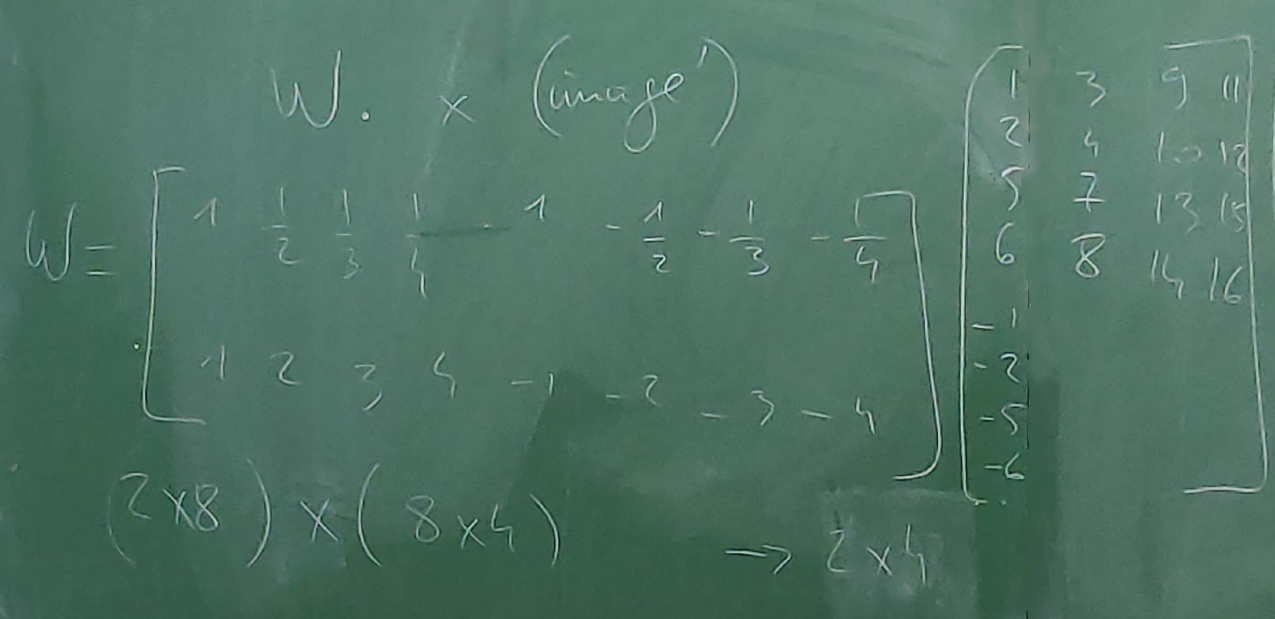 W. x (image')
W = [ 1 1/2 1/3 1/4 - 1 - 1/2 - 1/3 - 1/4
1 2 3 4 -1 -2 -3 -4 ]
[ 1 3 9 11
2 4 10 12
5 7 13 15
6 8 14 16
-1
-2
-5
-6 ]
(2x8) x (8x4) → 2x4